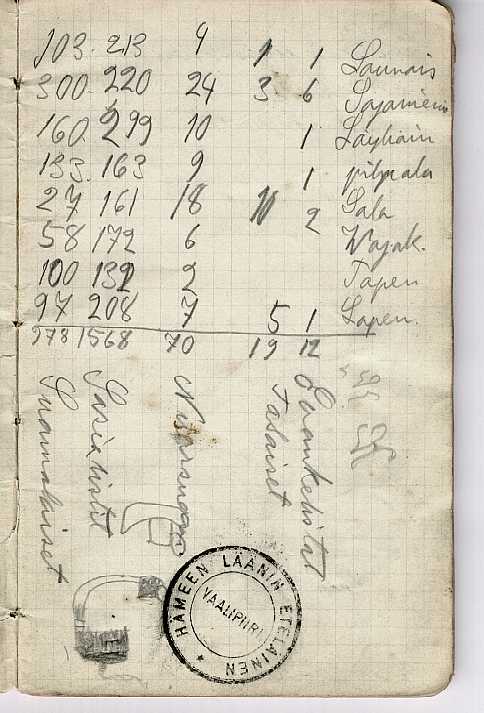 103. 213 9 1 1 Launois
300. 220 24 3. 6 Sajaniem
160. 299 10 1 Läyliäin
133. 163 9 1 pilpala
27 161 18 10 2 Sala
58 172 6 Vojak.
100 132 2 Topen
97 208 7 5 1 Lopen
978 1568 70 19 12
Suomalaiset
Sosialistit
Nuorsuom
Tasaiset
Evankelistat
HÄMEEN LÄÄNIN ETELÄINEN
VAALIPIIRI